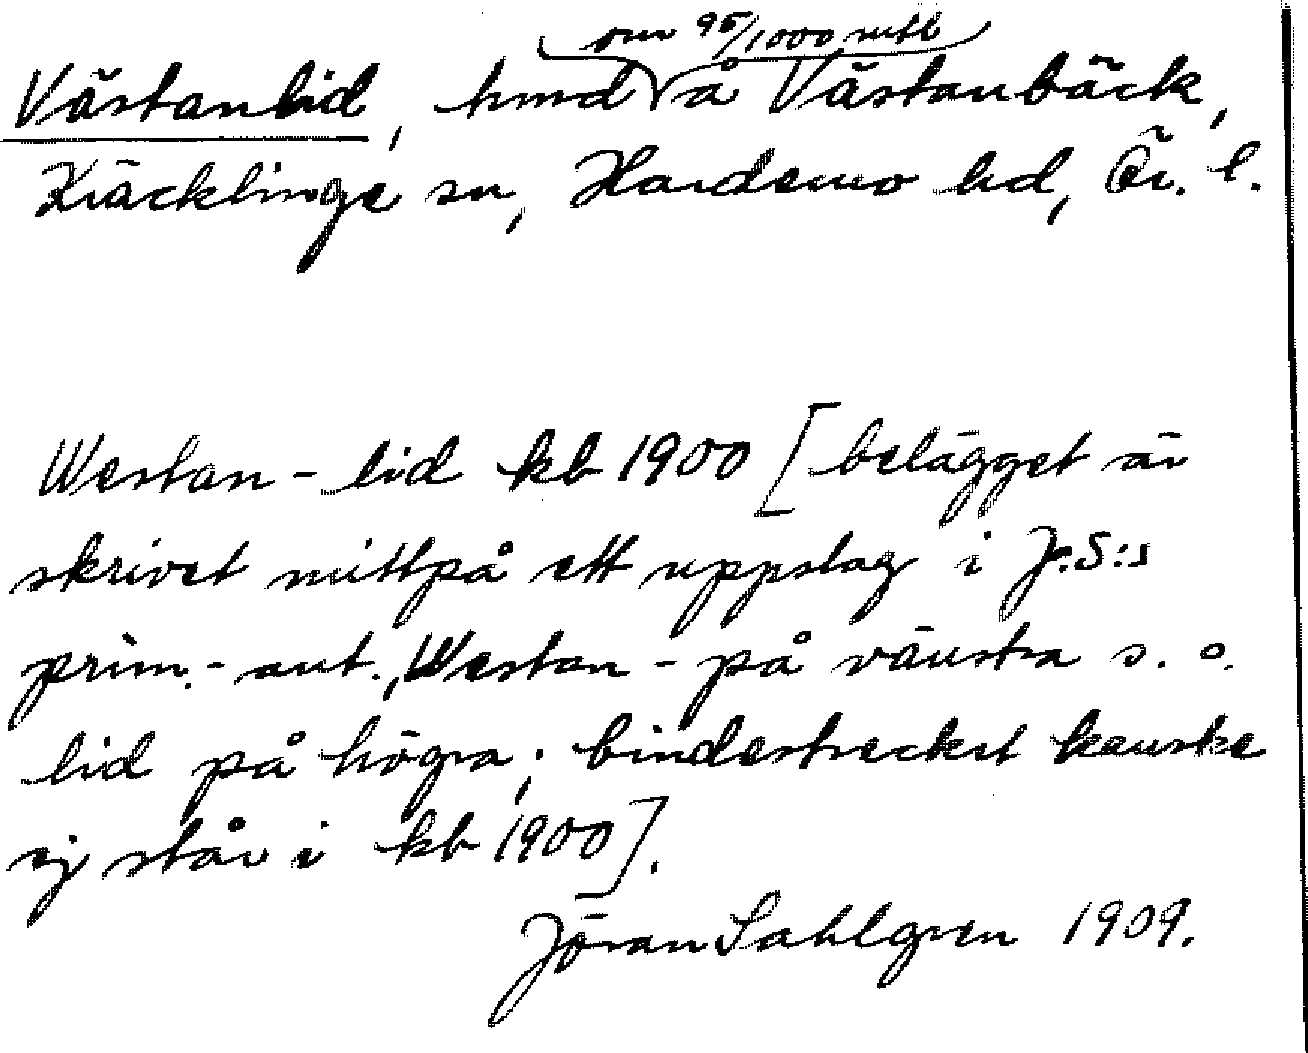 om 95/1000 mtl
Västanlid, hmd å Västanbäck,
Kräcklinge sn, Hardemo hd, Ör. l.
Westan-lid kb 1900 [belägget är
skrivet mittpå ett uppslag i J.S:s
prim.-ant., Westan- på vänstra s. o.
lid på högra; bindestrecket kanske
ej står i kb 1900].
Jöran Sahlgren 1909.